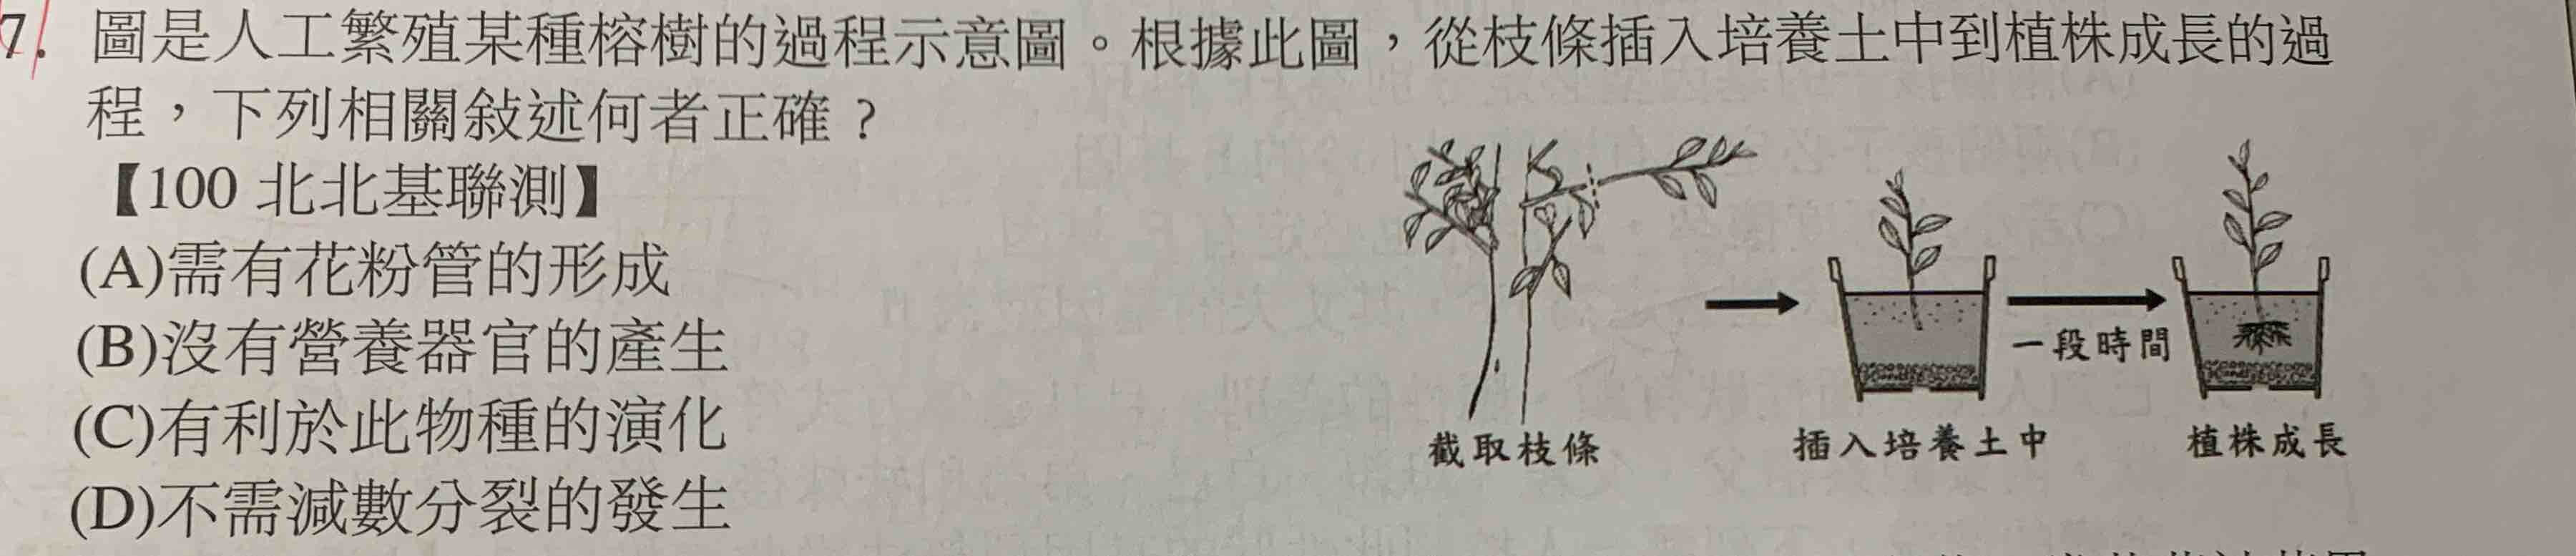 7. 圖是人工繁殖某種榕樹的過程示意圖。根據此圖，從枝條插入培養土中到植株成長的過
程，下列相關敍述何者正確？
【100 北北基聯測】
(A)需有花粉管的形成
(B)沒有營養器官的產生
(C)有利於此物種的演化
(D)不需減數分裂的發生
一段時間
截取枝條
插入培養土中
植株成長